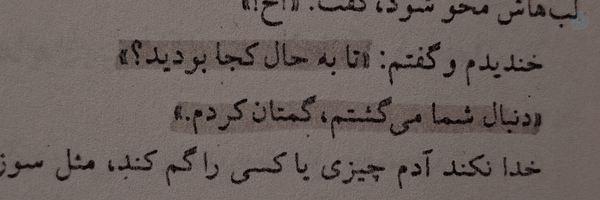 لب‌هاش محو شود، گفت: «اخ!»
خندیدم و گفتم: «تا به حال کجا بودید؟»
«دنبال شما می‌گشتم، گمتان کردم.»
خدا نکند آدم چیزی یا کسی را گم کند، مثل سوز